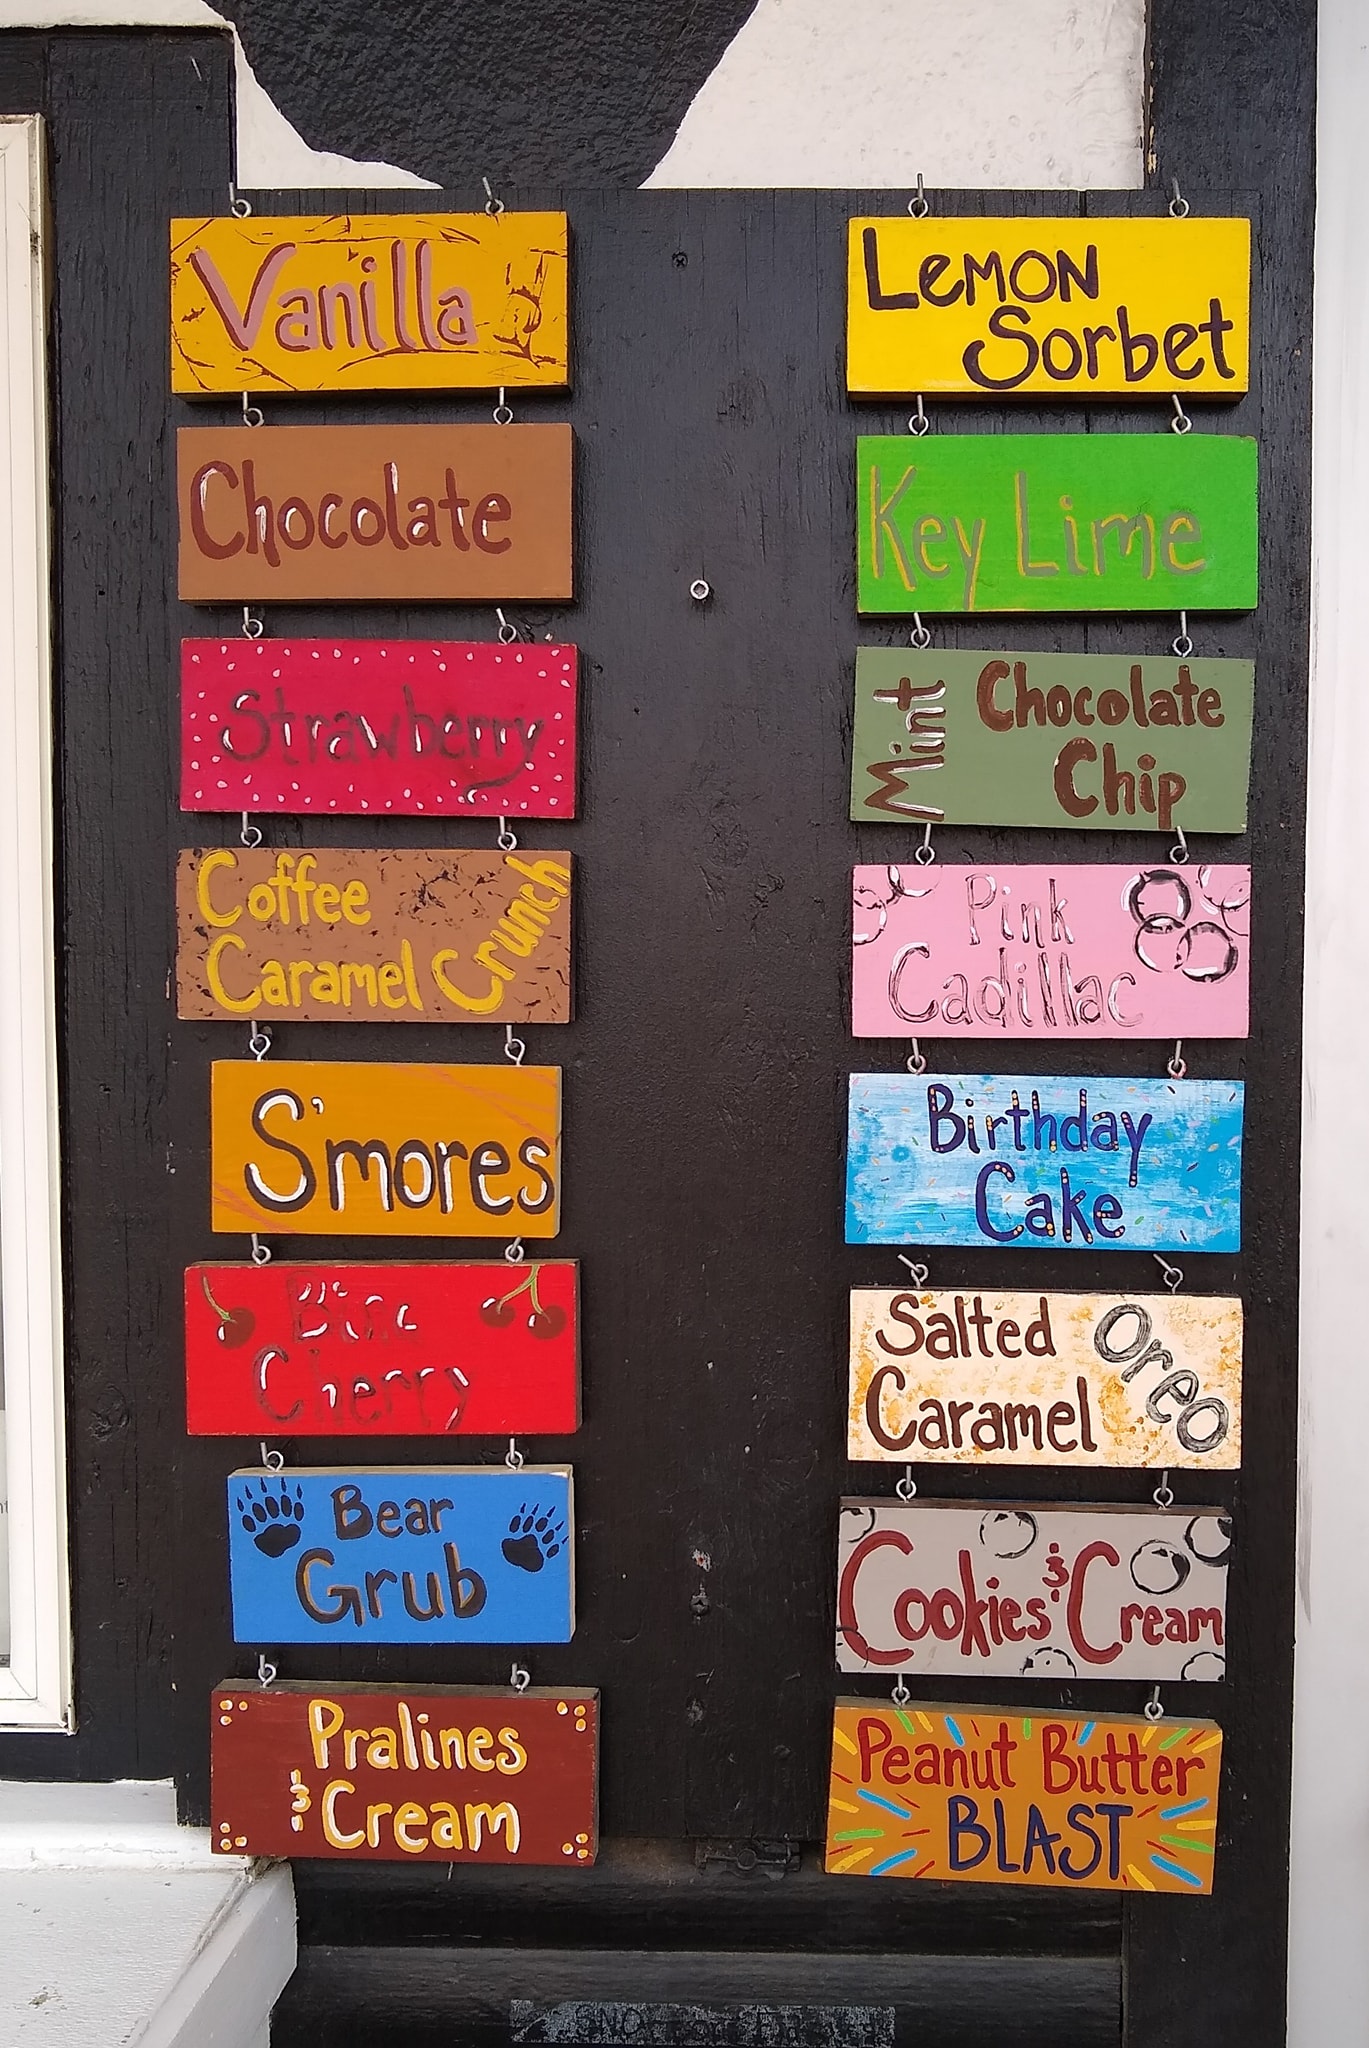 Vanilla
Chocolate
Strawberry
Coffee
Caramel Crunch
S'mores
Bing
Cherry
Bear
Grub
Pralines
& Cream
Lemon
Sorbet
Key Lime
Mint Chocolate
Chip
Pink
Cadillac
Birthday
Cake
Salted
Caramel
Oreo
Cookies & Cream
Peanut Butter
BLAST